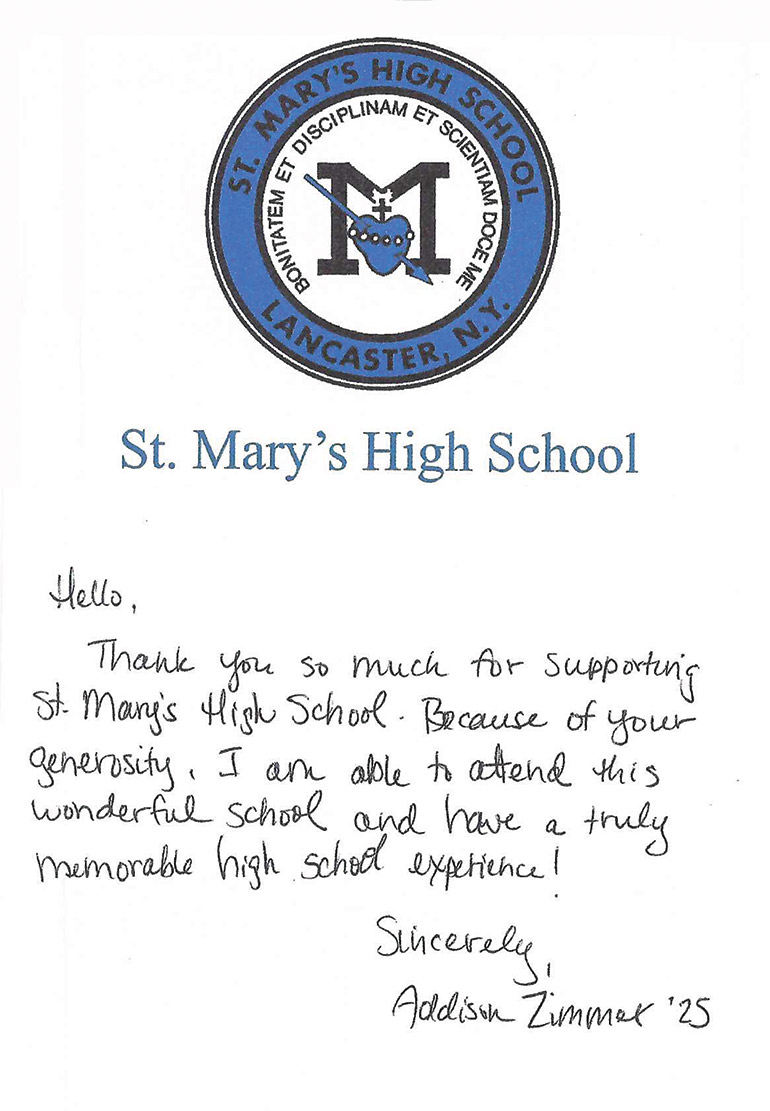 ST. MARY'S HIGH SCHOOL
BONITATEM ET DISCIPLINAM ET SCIENTIAM DOCE ME
M
LANCASTER, N.Y.
St. Mary's High School
Hello,
Thank you so much for supporting
St. Mary's High School. Because of your
generosity, I am able to attend this
wonderful school and have a truly
memorable high school experience!
Sincerely,
Addison Zimmer '25